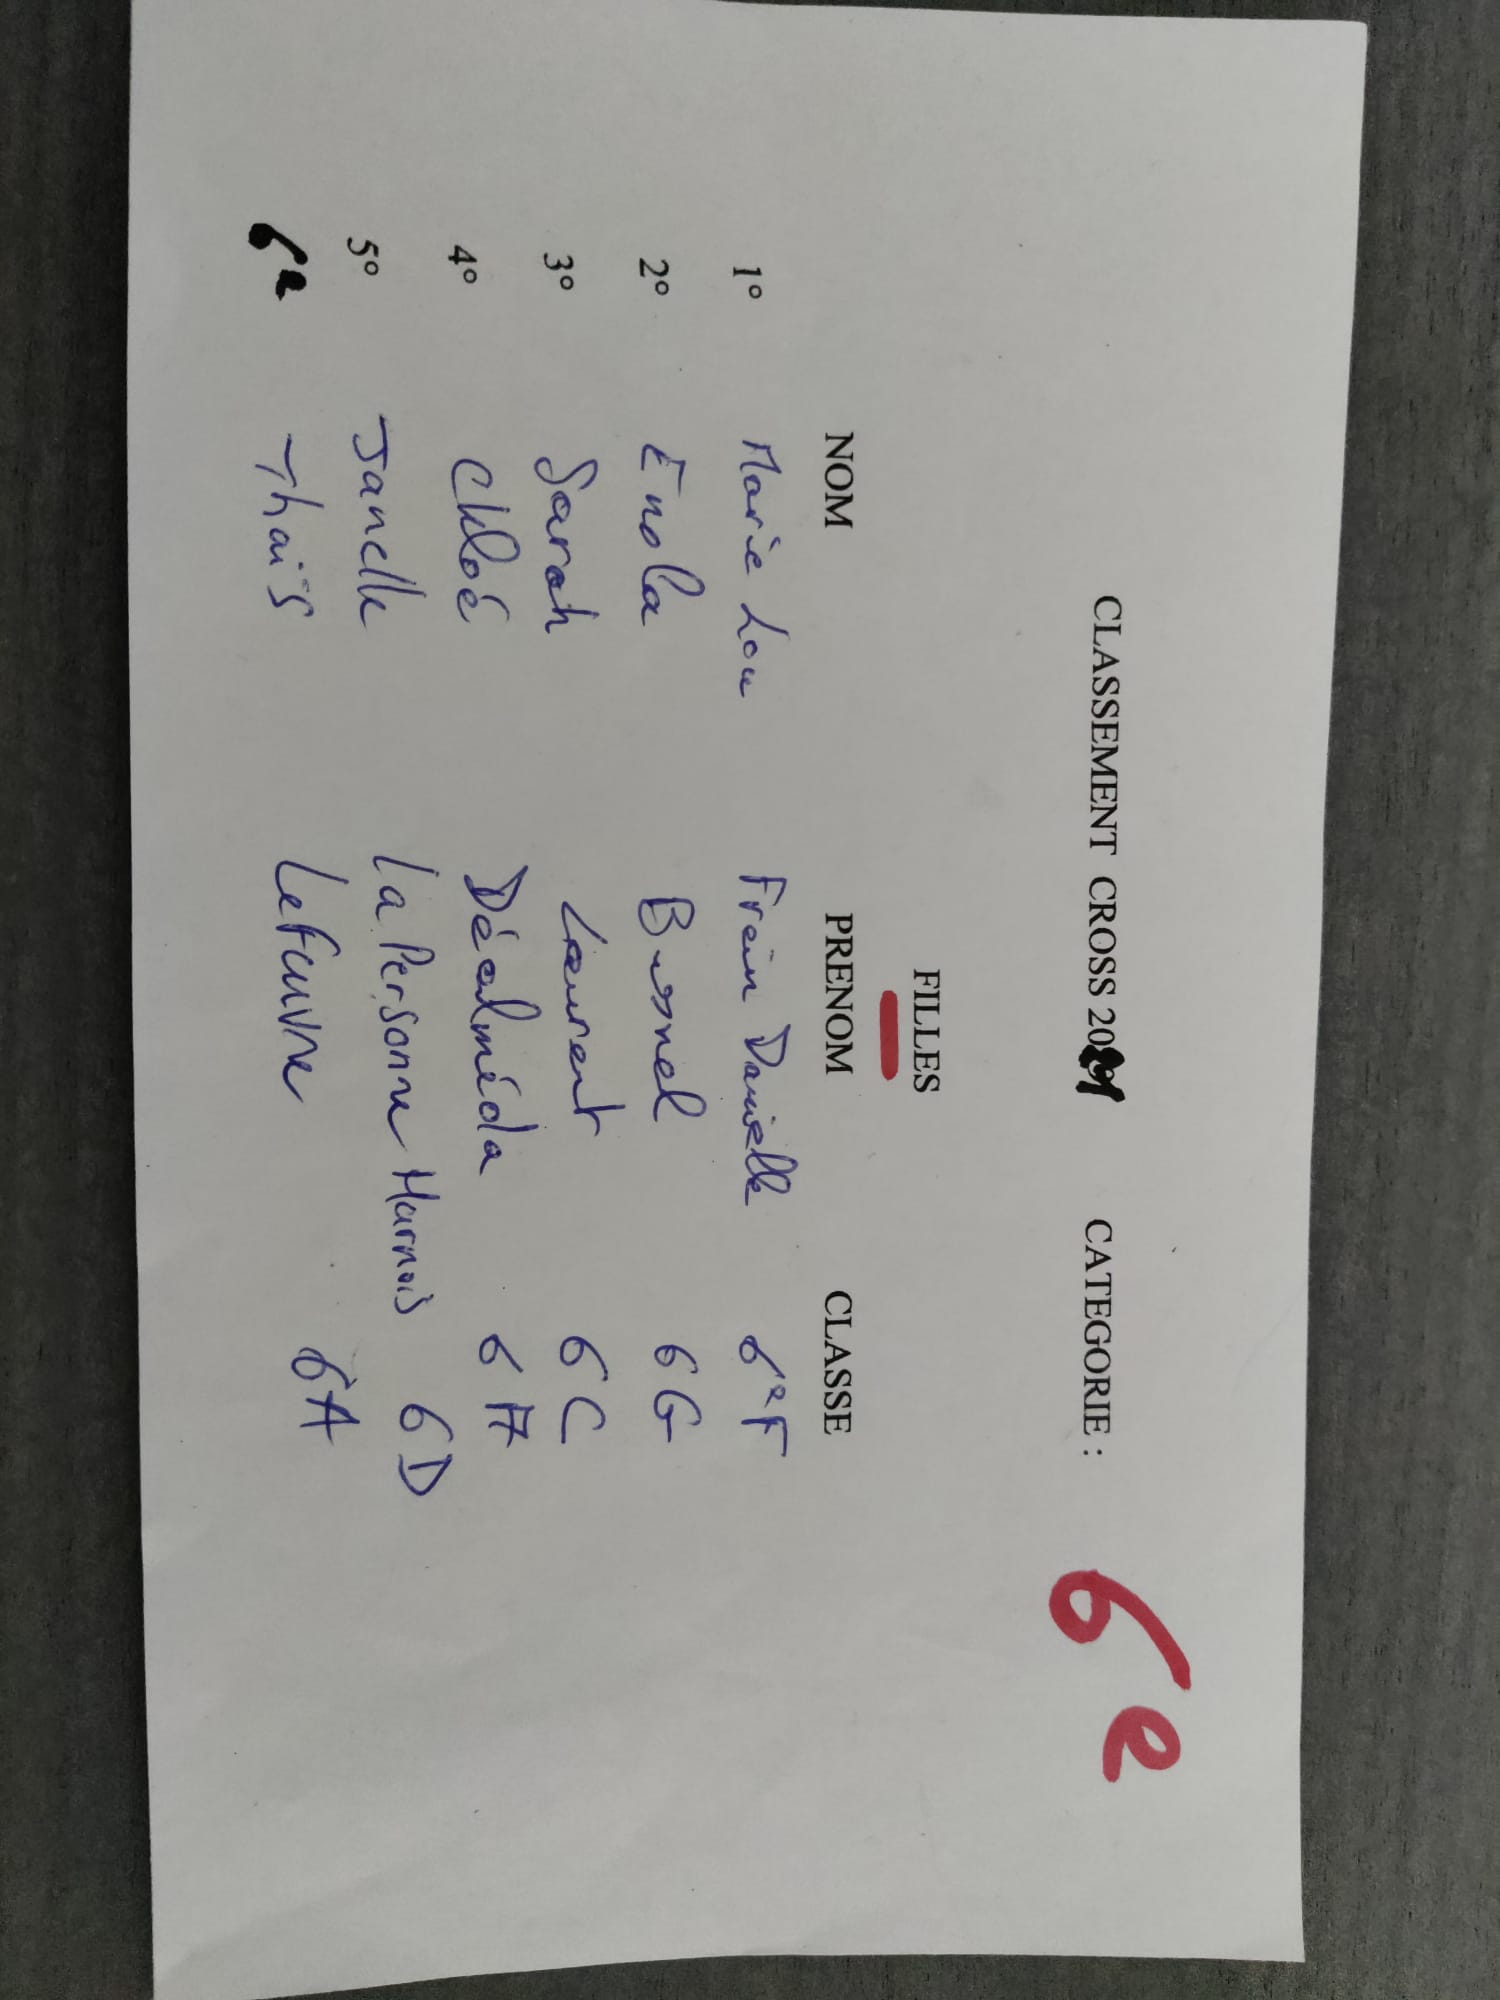 CLASSEMENT CROSS 20 CATEGORIE : 6e
FILLES
NOM PRENOM CLASSE
1° Marie Lou Frein Danielle 6eF
2° Enola Busnel 6G
3° Sarah Laurent 6C
4° Chloé Déalméda 6A
5° Janelle La Personne Harnois 6D
6e Thaïs Lefeuvre 6A